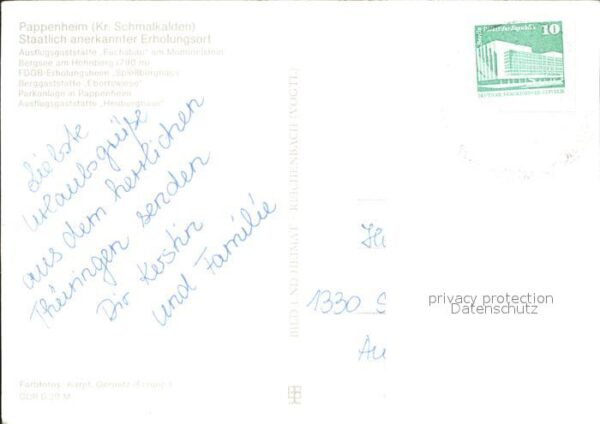 Pappenheim (Kr. Schmalkalden)
Staatlich anerkannter Erholungsort
Ausflugsgaststätte „Fuchsbau" am
Bergsee am Höhnberg (780 m)
FDGB-Erholungsheim „Spießberghaus"
Berggaststätte „Ebertswiese"
Parkanlage in Pappenheim
Ausflugsgaststätte „Heuberghaus"
Liebste
Urlaubsgrüße
aus dem herrlichen
Thüringen senden
Dir Kerstin
und Familie
BILD UND HEIMAT REICHENBACH (VOGTL)
10
DEUTSCHE DEMOKRATISCHE REPUBLIK
1330 S
privacy protection
Datenschutz
Au
Farbfotos: